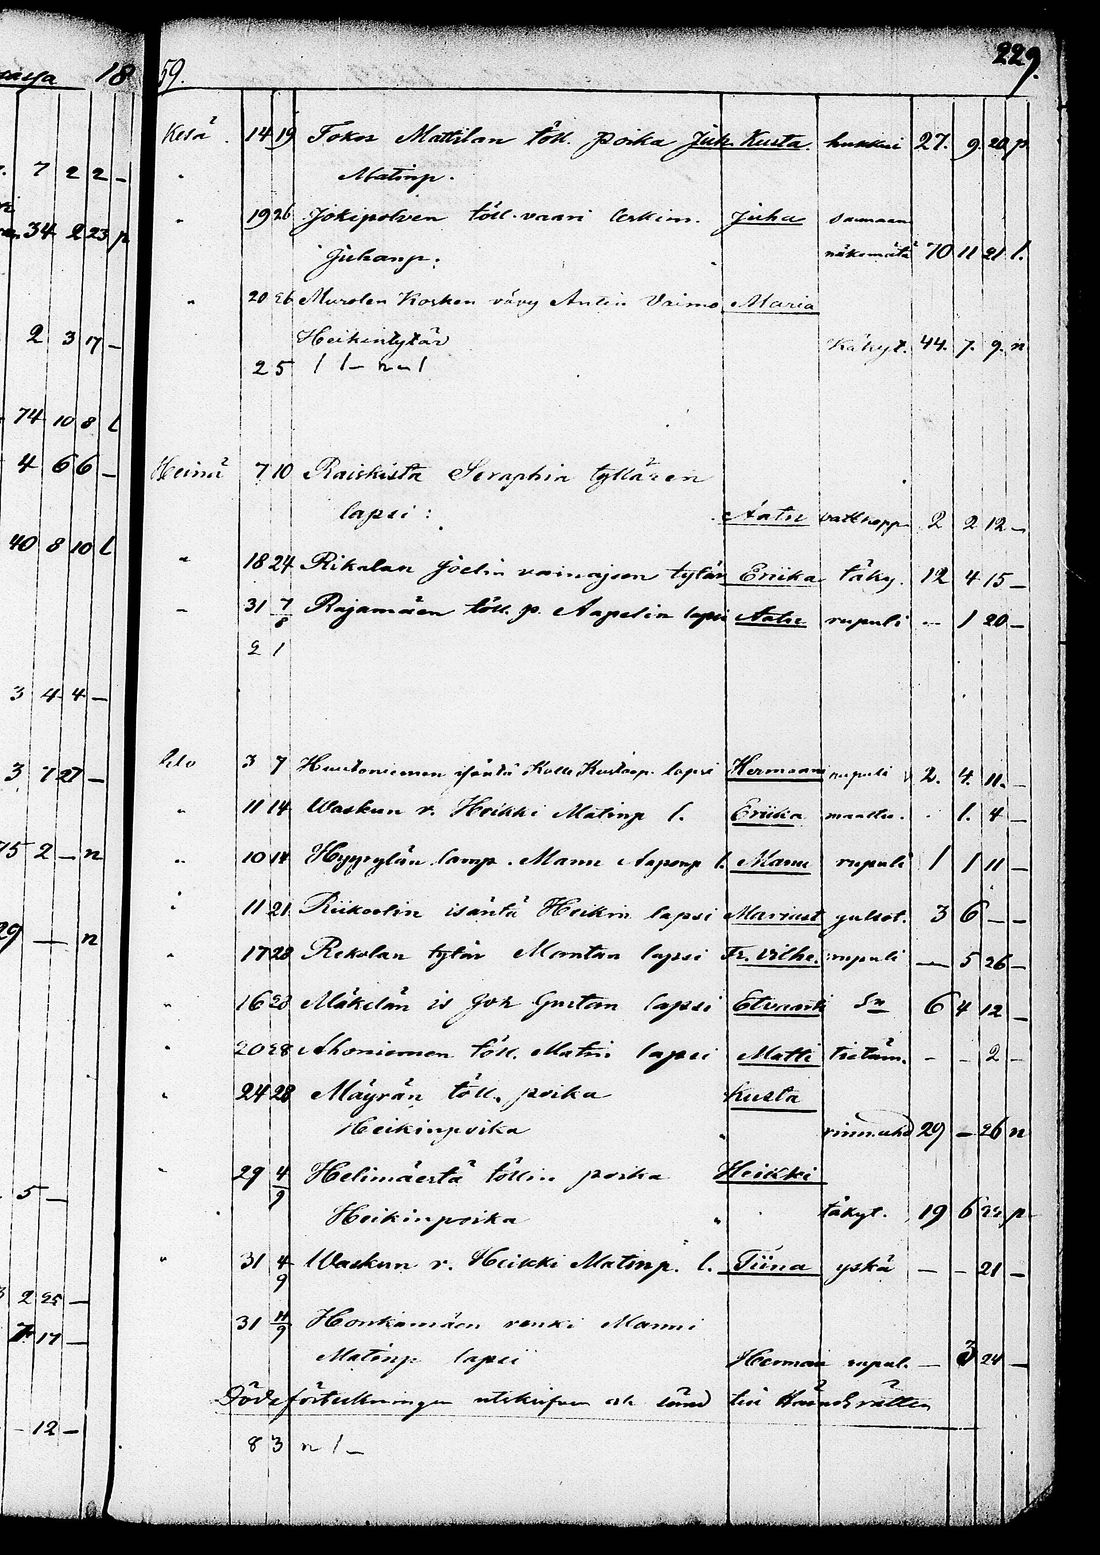 18
59.
229.
7 2 2 –
34 2 23 p
2 3 17 –
74 10 8 l
4 6 6 –
40 8 10 l
3 4 4 –
3 7 27 –
75 2 – n
29 — n
5 –
2 25 –
7 17 –
12 –
Kesä 14 19 Tokos Mattilan töll. poika Juh. Kusta hukkui 27. 9 20 p.
Matinp.
" 19 26 Jokipolven töll. vaari leskim. Juha
Juhanp. näkemätä 70 11 21 l.
" 20 26 Kosken vävy Antin Vaimo Maria
Heikintytär 44. 7. 9. n
2 5 1 1 – n – 1
Heinä 7 10 Raiskista Seraphia tyttären
lapsi: Aatu 2 2 12 –
" 18 24 Rikalan Joelin vainajan tytär Eriika täky. 12 4 15 –
" 31 7/8 Rajamäen töll. p. Aapelin lapsi Aatu rupuli – 1 20 –
2 1
Elo 3 7 isäntä Kalle Kustaap. lapsi Hermanni rupuli 2. 4. 11. –
" 11 14 Waskun r. Heikki Matinp l. Eriika 1. 4 –
" 10 14 Hyyrylän lamp. Manu Aaponp l. Manu rupuli 1 1 11 –
" 11 21 Riikoslin isäntä Heikin lapsi 3 6 – –
" 17 28 Rekolan tytär lapsi Fr. Vilhe. rupuli — 5 26 –
" 16 28 Mäkelän is Joh Gustan lapsi Etvartti Sn 6 4 12 –
" 20 28 Ahoniemen töll. Matin lapsi Matti tietäm. – – 2 –
" 24 28 Mäyrän töll. poika Kusta
Heikinpoika " 29 – 26 n
" 29 4/9 Helimäestä töllin poika Heikki
Heikinpoika " täkyt. 19 6 22 p
" 31 4/9 Waskun r. Heikki Matinp. l. Tiina yskä – – 21 –
31 11/9 Honkamäen renki Manni
Matinp lapsi Herman rupul. — 3 24 –
Dödsförteckningen utskrifven och sänd till HäradsRätten
8 3 n 1 –